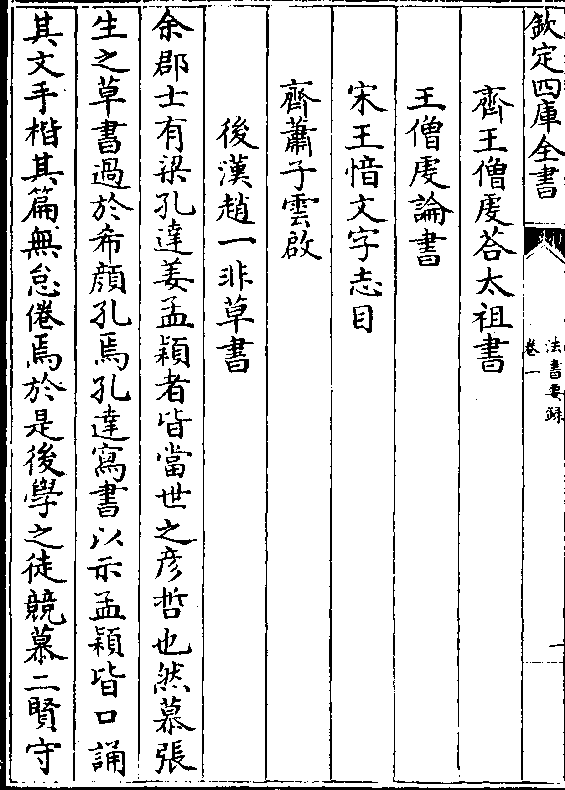 欽定四庫全書
法書要錄
卷一
齊王僧虔答太祖書
王僧虔論書
宋王愔文字志目
齊蕭子雲啟
後漢趙一非草書
余郡士有梁孔達姜孟穎者皆當世之彥哲也然慕張
生之草書過於希顔孔焉孔達寫書以示孟穎皆口誦
其文手楷其篇無怠倦焉於是後學之徒競慕二賢守